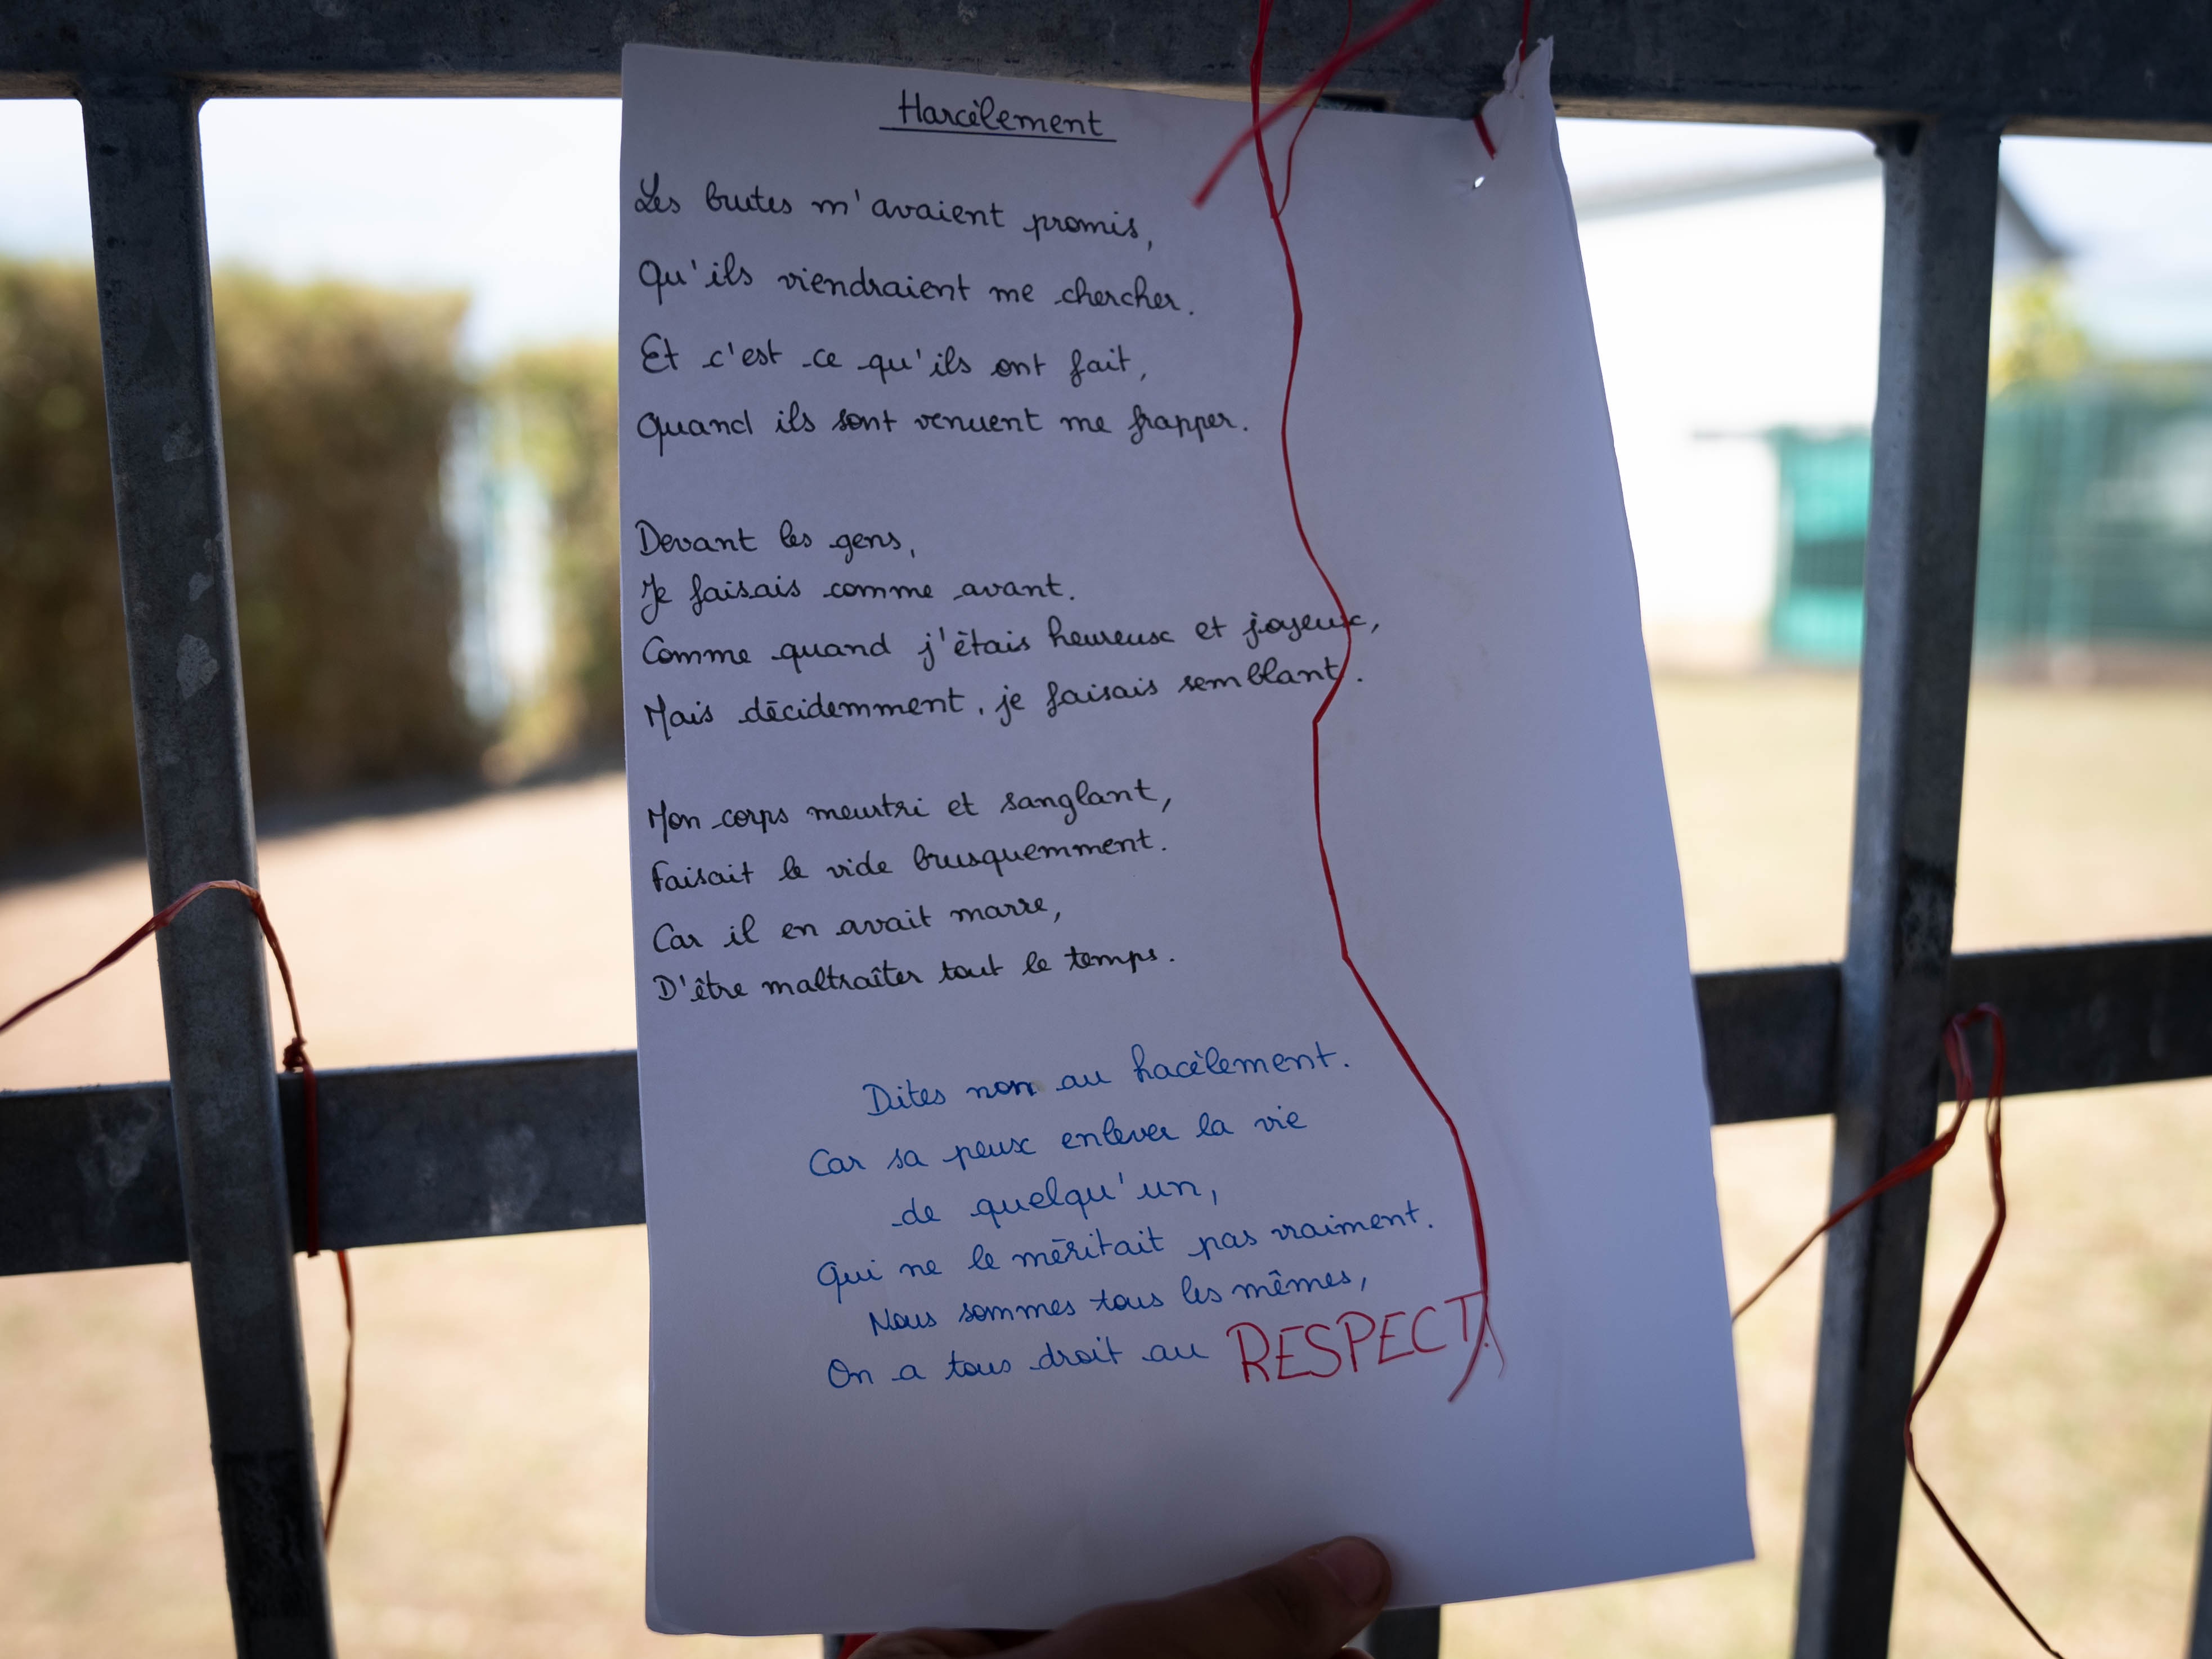 Harcèlement
Les brutes m'avaient promis,
Qu'ils viendraient me chercher.
Et c'est ce qu'ils ont fait,
Quand ils sont venuent me frapper.
Devant les gens,
Je faisais comme avant.
Comme quand j'étais heureux et joyeux,
Mais décidemment, je faisais semblant.
Mon corps meurtri et sanglant,
Faisait le vide brusquemment.
Car il en avait marre,
D'être maltraîter tout le temps.
Dites non au hacèlement.
Car sa peux enlever la vie
de quelqu'un,
Qui ne le méritait pas vraiment.
Nous sommes tous les mêmes,
On a tous droit au RESPECT.